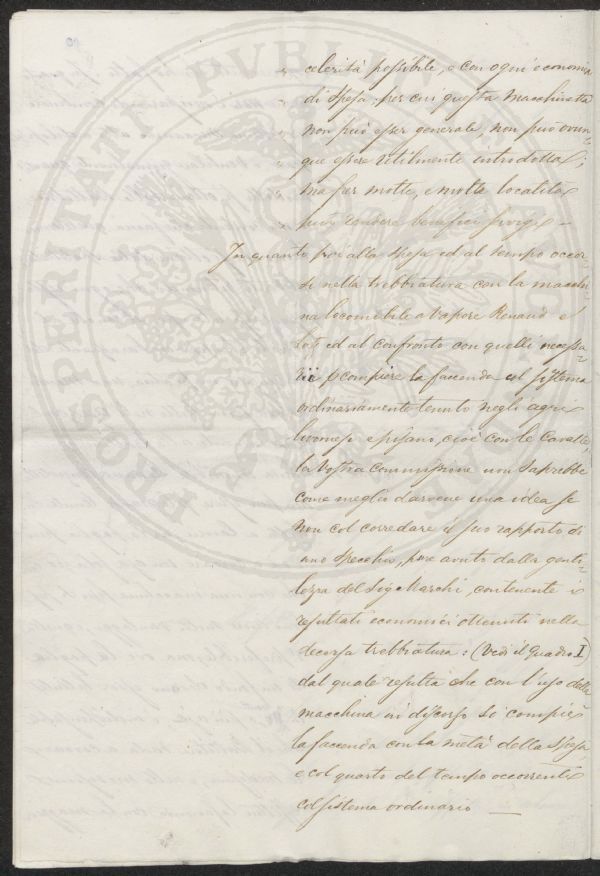 PROSPERITATI PVBLICAE
„ celerità possibile, e con ogni economia
„ di spesa; per cui questa macchinetta
„ non può esser generale, non può ovun-
„ que essere utilmente introdotta;
„ ma per molte, e molte località
può rendere benefici
In quanto poi alla spesa ed al tempo occor
si nella trebbiatura con la macchi
na locomobile a vapore Renaud e
Lotz ed al confronto con quelli necessa-
rii p compiere la faccenda col sistema
ordinariamente tenuto negli agri
livornesi e pisano, cioè con le Cavalle,
la Vostra Commissione non saprebbe
come meglio darvene una idea se
non col corredare il suo rapporto di
uno specchio, pure avuto dalla genti-
lezza del Sig Marchi, contenente i
resultati economici ottenuti nella
decorsa trebbiatura: (Vedi il Quadro I)
dal quale resulta che con l'uso della
macchina in discorso si compiè
la faccenda con la metà della spesa
e col quarto del tempo occorrente
col sistema ordinario —